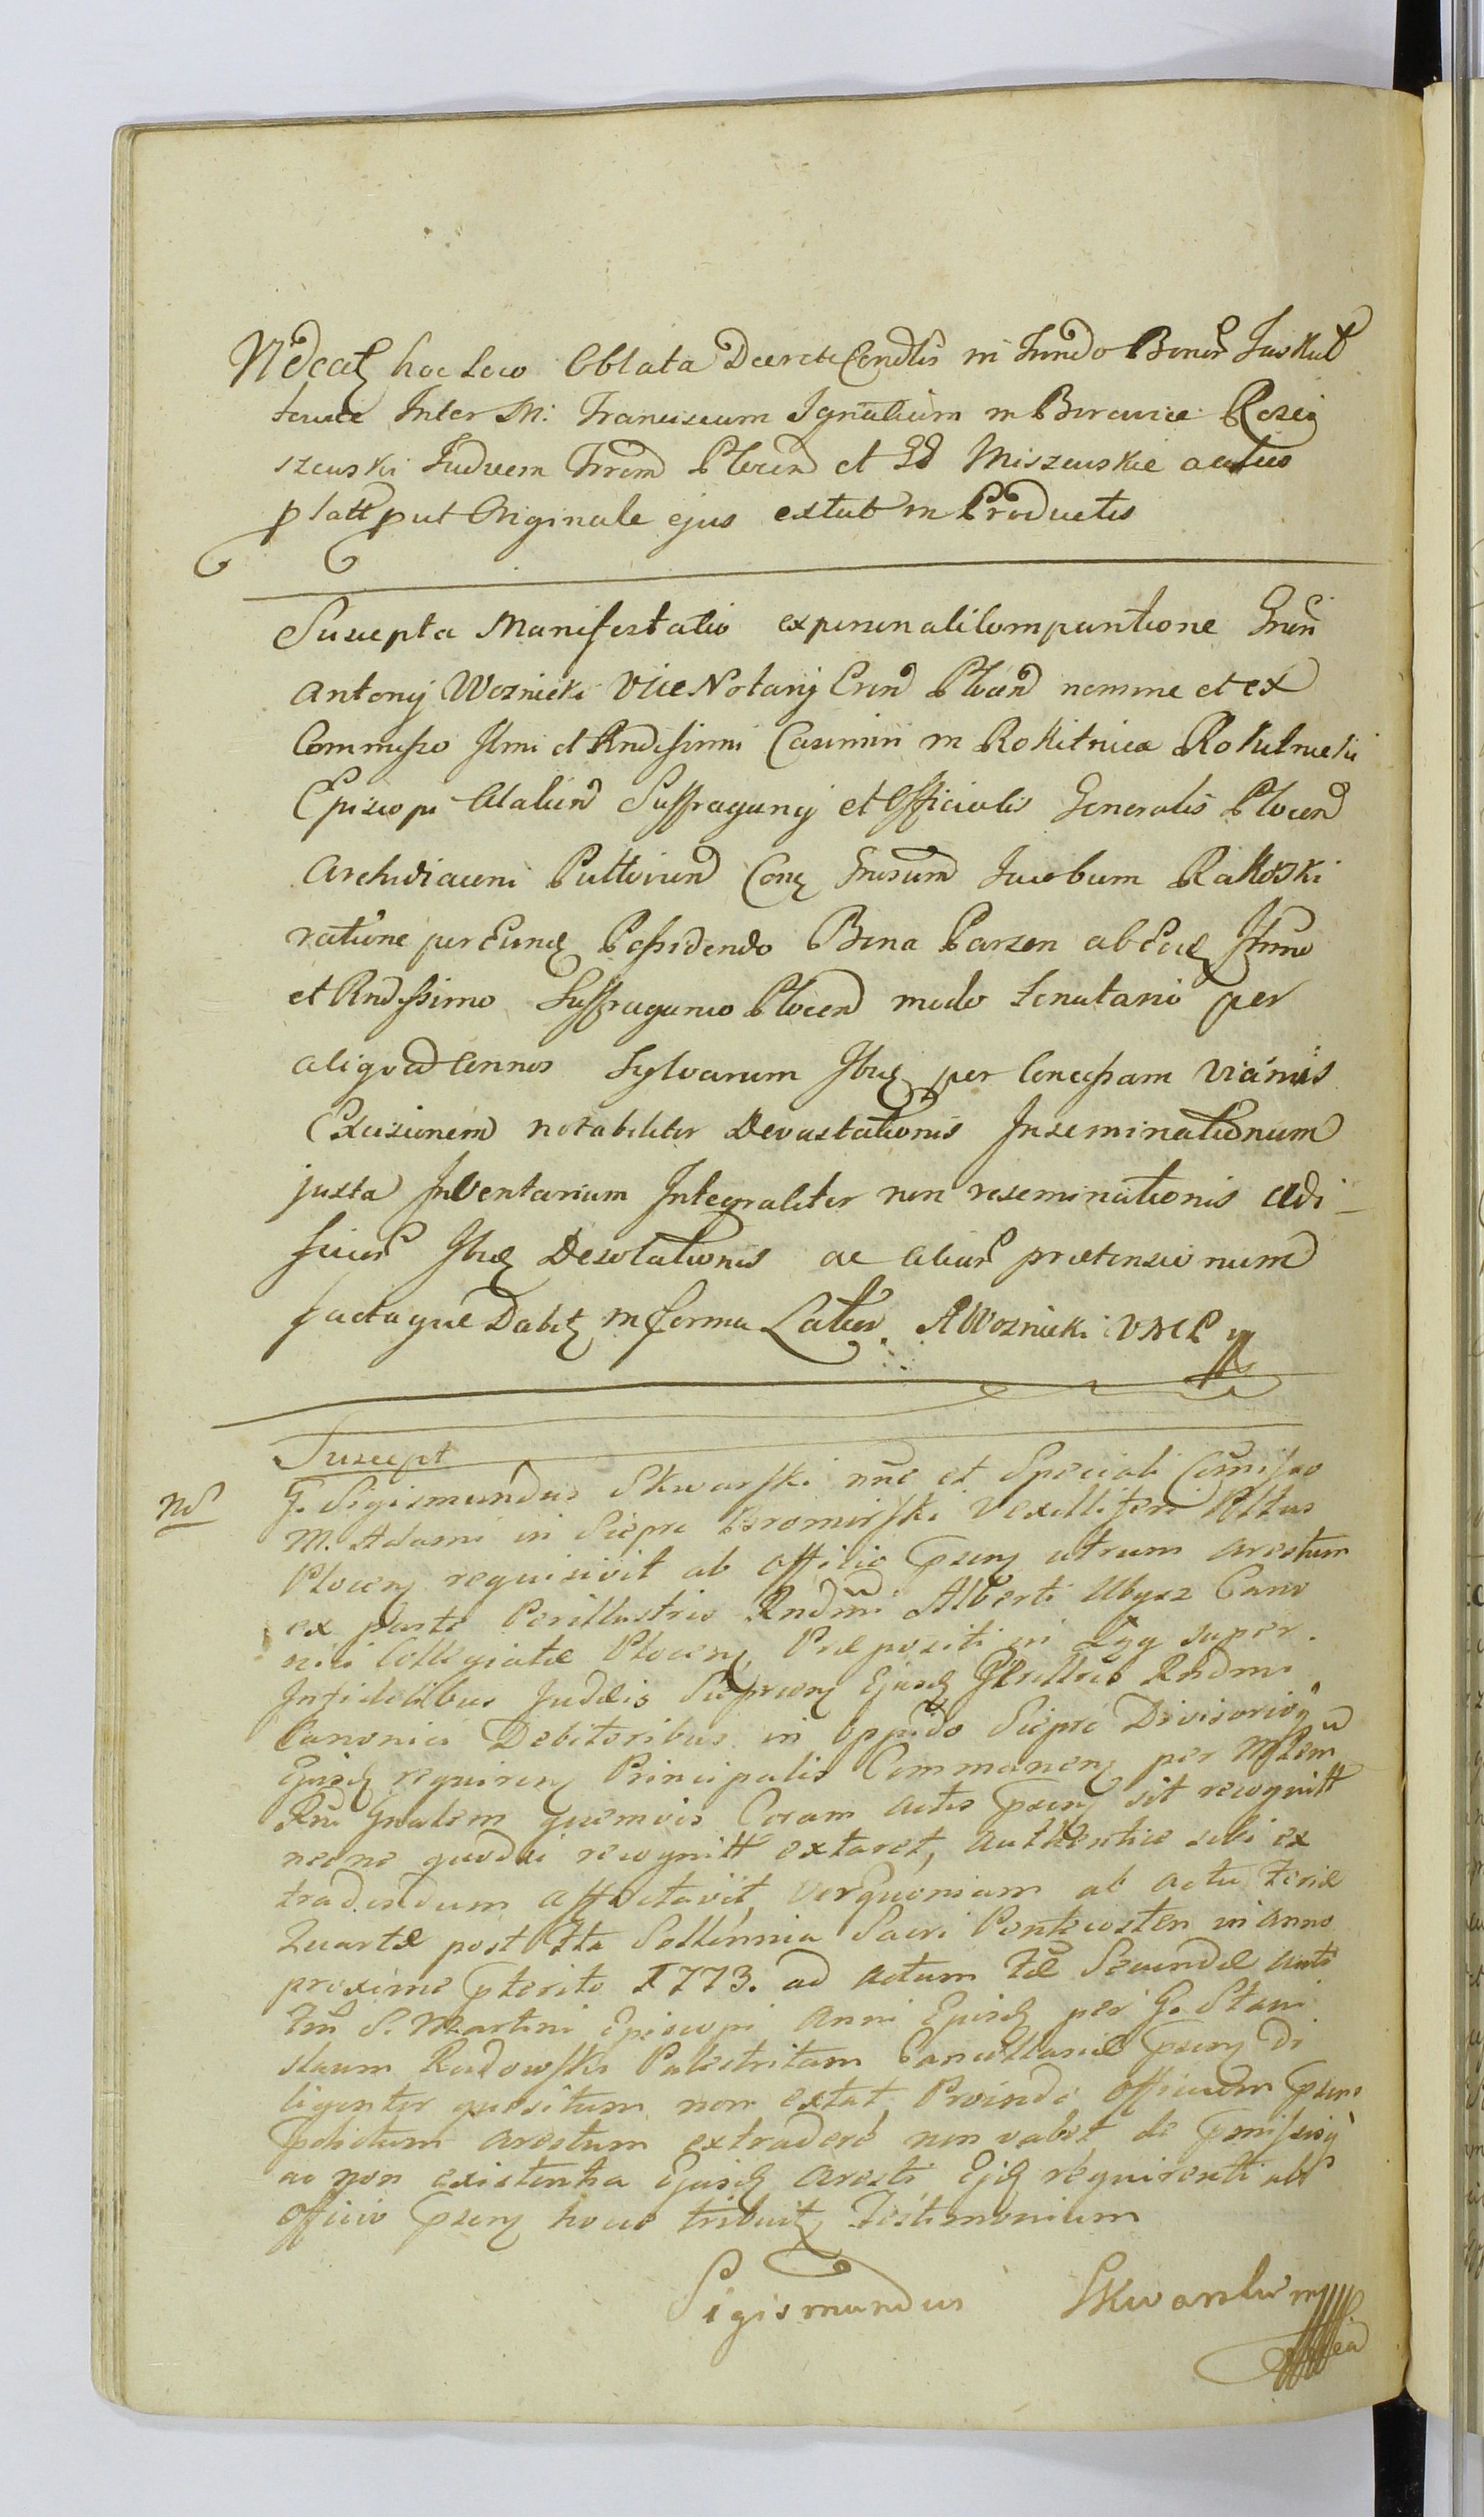 Ndcatz hoc loco Oblata Decreti Condlis in fundo Bonor
Inter M: Franciscum Ignatium in Borowice Rości
szewski Judicem Trem Plocen et GG Miszewskie actus
p latt put Originale ejus extat in Productis
Suscepta Manifestatio ex personali Comparitione Grsi
Antonij Woznicki Vice Notarij Cren Plocen nomine et ex
Commisso Illmi et Rndissimi Casimiri in Rokitnica Rokitnicki
Episcopi Suffraganij et Officialis Generalis Plocen
Archidiaconi Pultovien Conz Grosum Jacobum Rakoski
ratione per Eund Possidendo Bona Parzen ab Eod Illmo
et Rndissimo Suffraganeo Plocen modo Tenutario per
aliquod Annos Sylvarum Ibid per Concessam Vicinis
Excisionem notabiliter Devastationis Inseminationum
juxta Inventarium Integraliter non reseminationis Aedi
ficior Ibid Desolationis ac Aliar praetensionum
factaque Dabitz in forma Latior. AWoznicki VNCP mp
Suscept
Nd G. Sigismundus Skwarski nne et Speciali Comisso
M. Adami in Siepre Bromirski Vexilliferi Pttus
Plocenz requisivit ab officio pzenz utrum arestum
ex parte Perillustris Rndmi Alberti Ubysz Cano
nici Collegiatae Plocenz, Praepositi in Ligg super
Infidelibus Judaeis Sieprcenz Ejusd Perillris Rndmi
Canonici Debitoribus in oppido Siepre Divisorioz
Ejusd requirenz Principalis Commanenz per Mlem
Rni Gnalem quemvis Coram actis pzenz sit recognitt
necne quod si recognitt extaret, authentice sibi ex
tradendum affectavit, Verquoniam ab actu Feriae
Quartae post Fta Sollennia Sacri Pentecosten in anno
proxime pterito 1773. ad actum Fae Secundae ante
Ftm S. Martini Episcopi Anni Ejusd per G. Stani
slaum Radowski Palestritam Cancellariae pzenz di
ligenter quesitum non extat, Proinde officium pzens
pdictum arestum extradere non valet, de pmissisq
ac non existentia Ejusd Aresti, Ejd requirenti abs
officio pzenz hocce tribuitz Testimonium
Sigismundus Skwarski mp